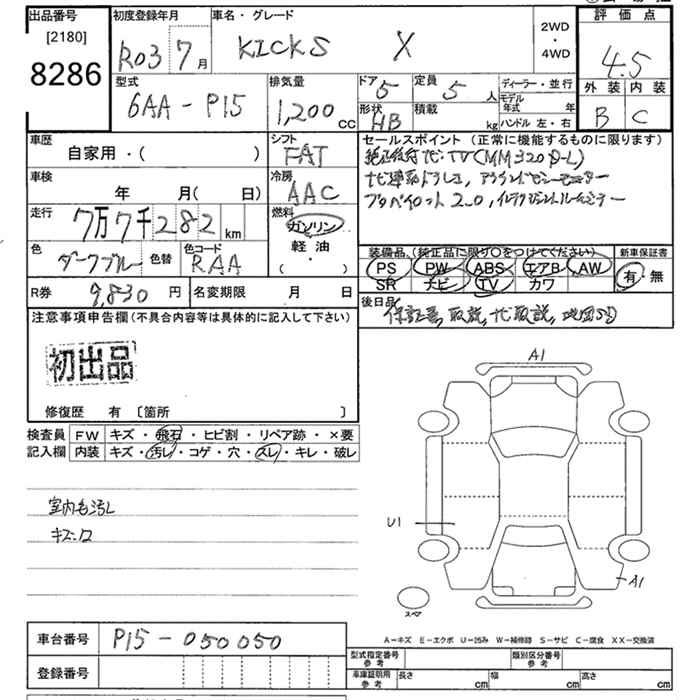 出品番号
[2180]
8286
初度登録年月
R03 7月
車名・グレード
KICKS X
2WD
・
4WD
評価点
4.5
外装 内装
B C
型式
6AA-P15
排気量
1,200 cc
ドア 5
定員 5 人
形状 HB
積載 kg
ディーラー・並行
モデル年式 年
ハンドル 左・右
車歴
自家用・( )
シフト
FAT
車検
年 月( 日)
冷房
AAC
走行
7万7千282 km
燃料
ガソリン
軽油
( ・ )
色
ダークブルー
色替
色コード
RAA
R券 9,830 円
名変期限 月 日
セールスポイント (正常に機能するものに限ります)
純正後付ナビ・TV(MM320D-L)
ナビ連動ドラレコ, アラウンドビューモニター
プロパイロット2.0, インテリジェントルームミラー
装備品 (純正品に限り○をつけてください)
PS PW ABS エアB AW
SR ナビ TV カワ
新車保証書
有・無
後日品
保証書, 取説, ナビ取説, 地図SD
注意事項申告欄(不具合内容等は具体的に記入して下さい)
初出品
修復歴 有 〔箇所 〕
検査員 FW キズ・飛石・ヒビ割・リペア跡・×要
記入欄 内装 キズ・汚レ・コゲ・穴・スレ・キレ・破レ
室内も汚し
A1
U1
A1
スペア
A-キズ E-エクボ U-凹み W-補修跡 S-サビ C-腐食 XX-交換済
車台番号 P15-050050
登録番号
型式指定番号
参考
類別区分番号
参考
車庫証明用
参考
長さ cm 幅 cm 高さ cm